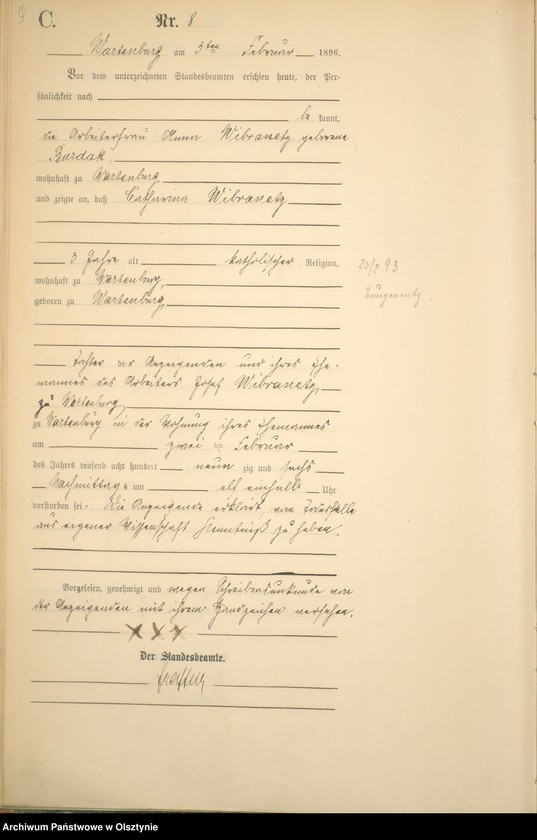 C.
Nr. 8
Wartenburg am 3ten Februar 1896.
Vor dem unterzeichneten Standesbeamten erschien heute, der Per-
sönlichkeit nach
be kannt,
die Arbeiterfrau Anna Wibranetz geborene
Burdak,
wohnhaft zu Wartenburg
und zeigte an, daß Catharina Wibranetz
3 Jahre alt katholischer Religion,
wohnhaft zu Wartenburg,
geboren zu Wartenburg,
Tochter der Anzeigenden und ihres Ehe-
mannes des Arbeiters Josef Wibranetz,
zu Wartenburg
zu Wartenburg in der Wohnung ihres Ehemannes
am zwei ten Februar
des Jahres tausend acht hundert neun zig und sechs
Nachmittags um elf einhalb Uhr
verstorben sei. Die Anzeigende erklärt, vom Todesfalle
aus eigener Wissenschaft Kenntniß zu haben.
Vorgelesen, genehmigt und wegen Schreibensunkunde von
der Anzeigenden mit ihrem Handzeichen versehen.
XXX
Der Standesbeamte.
93
Archiwum Państwowe w Olsztynie